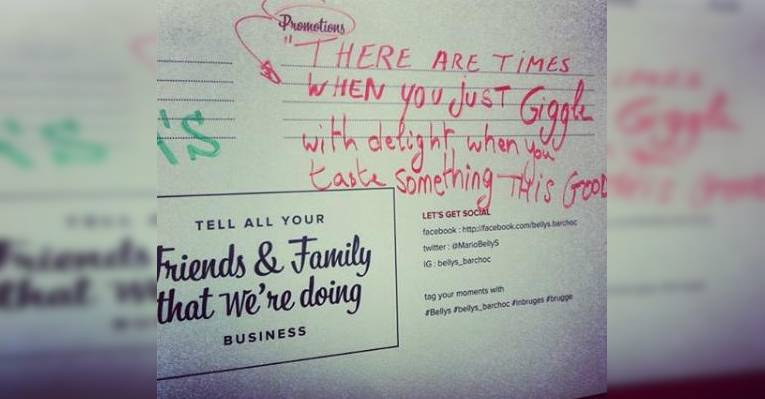 Promotions
"THERE ARE TiMES
WHEN YOU JUST Giggle
with delight, when you
taste something THiS GOOD
'S
TELL ALL YOUR
Friends & Family
that We're doing
BUSINESS
LET'S GET SOCIAL
facebook : http://facebook.com/bellys.barchoc
twitter : @MarioBellyS
IG : bellys_barchoc
tag your moments with
#Bellys #bellys_barchoc #inbruges #brugge